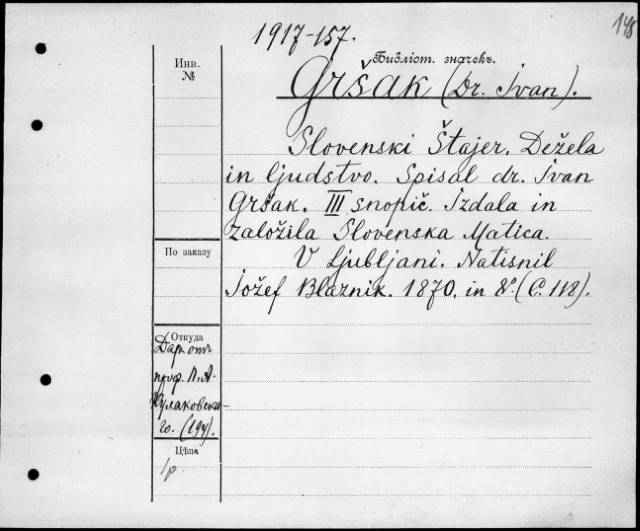 148
1917-157.
Инв.
№
Библіот. значекъ.
Gršak (Dr. Ivan).
Slovenski Štajer. Dežela
in ljudstvo. Spisal dr. Ivan
Gršak. III snopič. Izdala in
založila Slovenska Matica.
V Ljubljani. Natisnil
Jožef Blaznik. 1870. in 8º. (C. 118).
По заказу
Откуда
Даръ отъ
проф. П. А.
Кулаковска-
го.
Цѣна
1р.